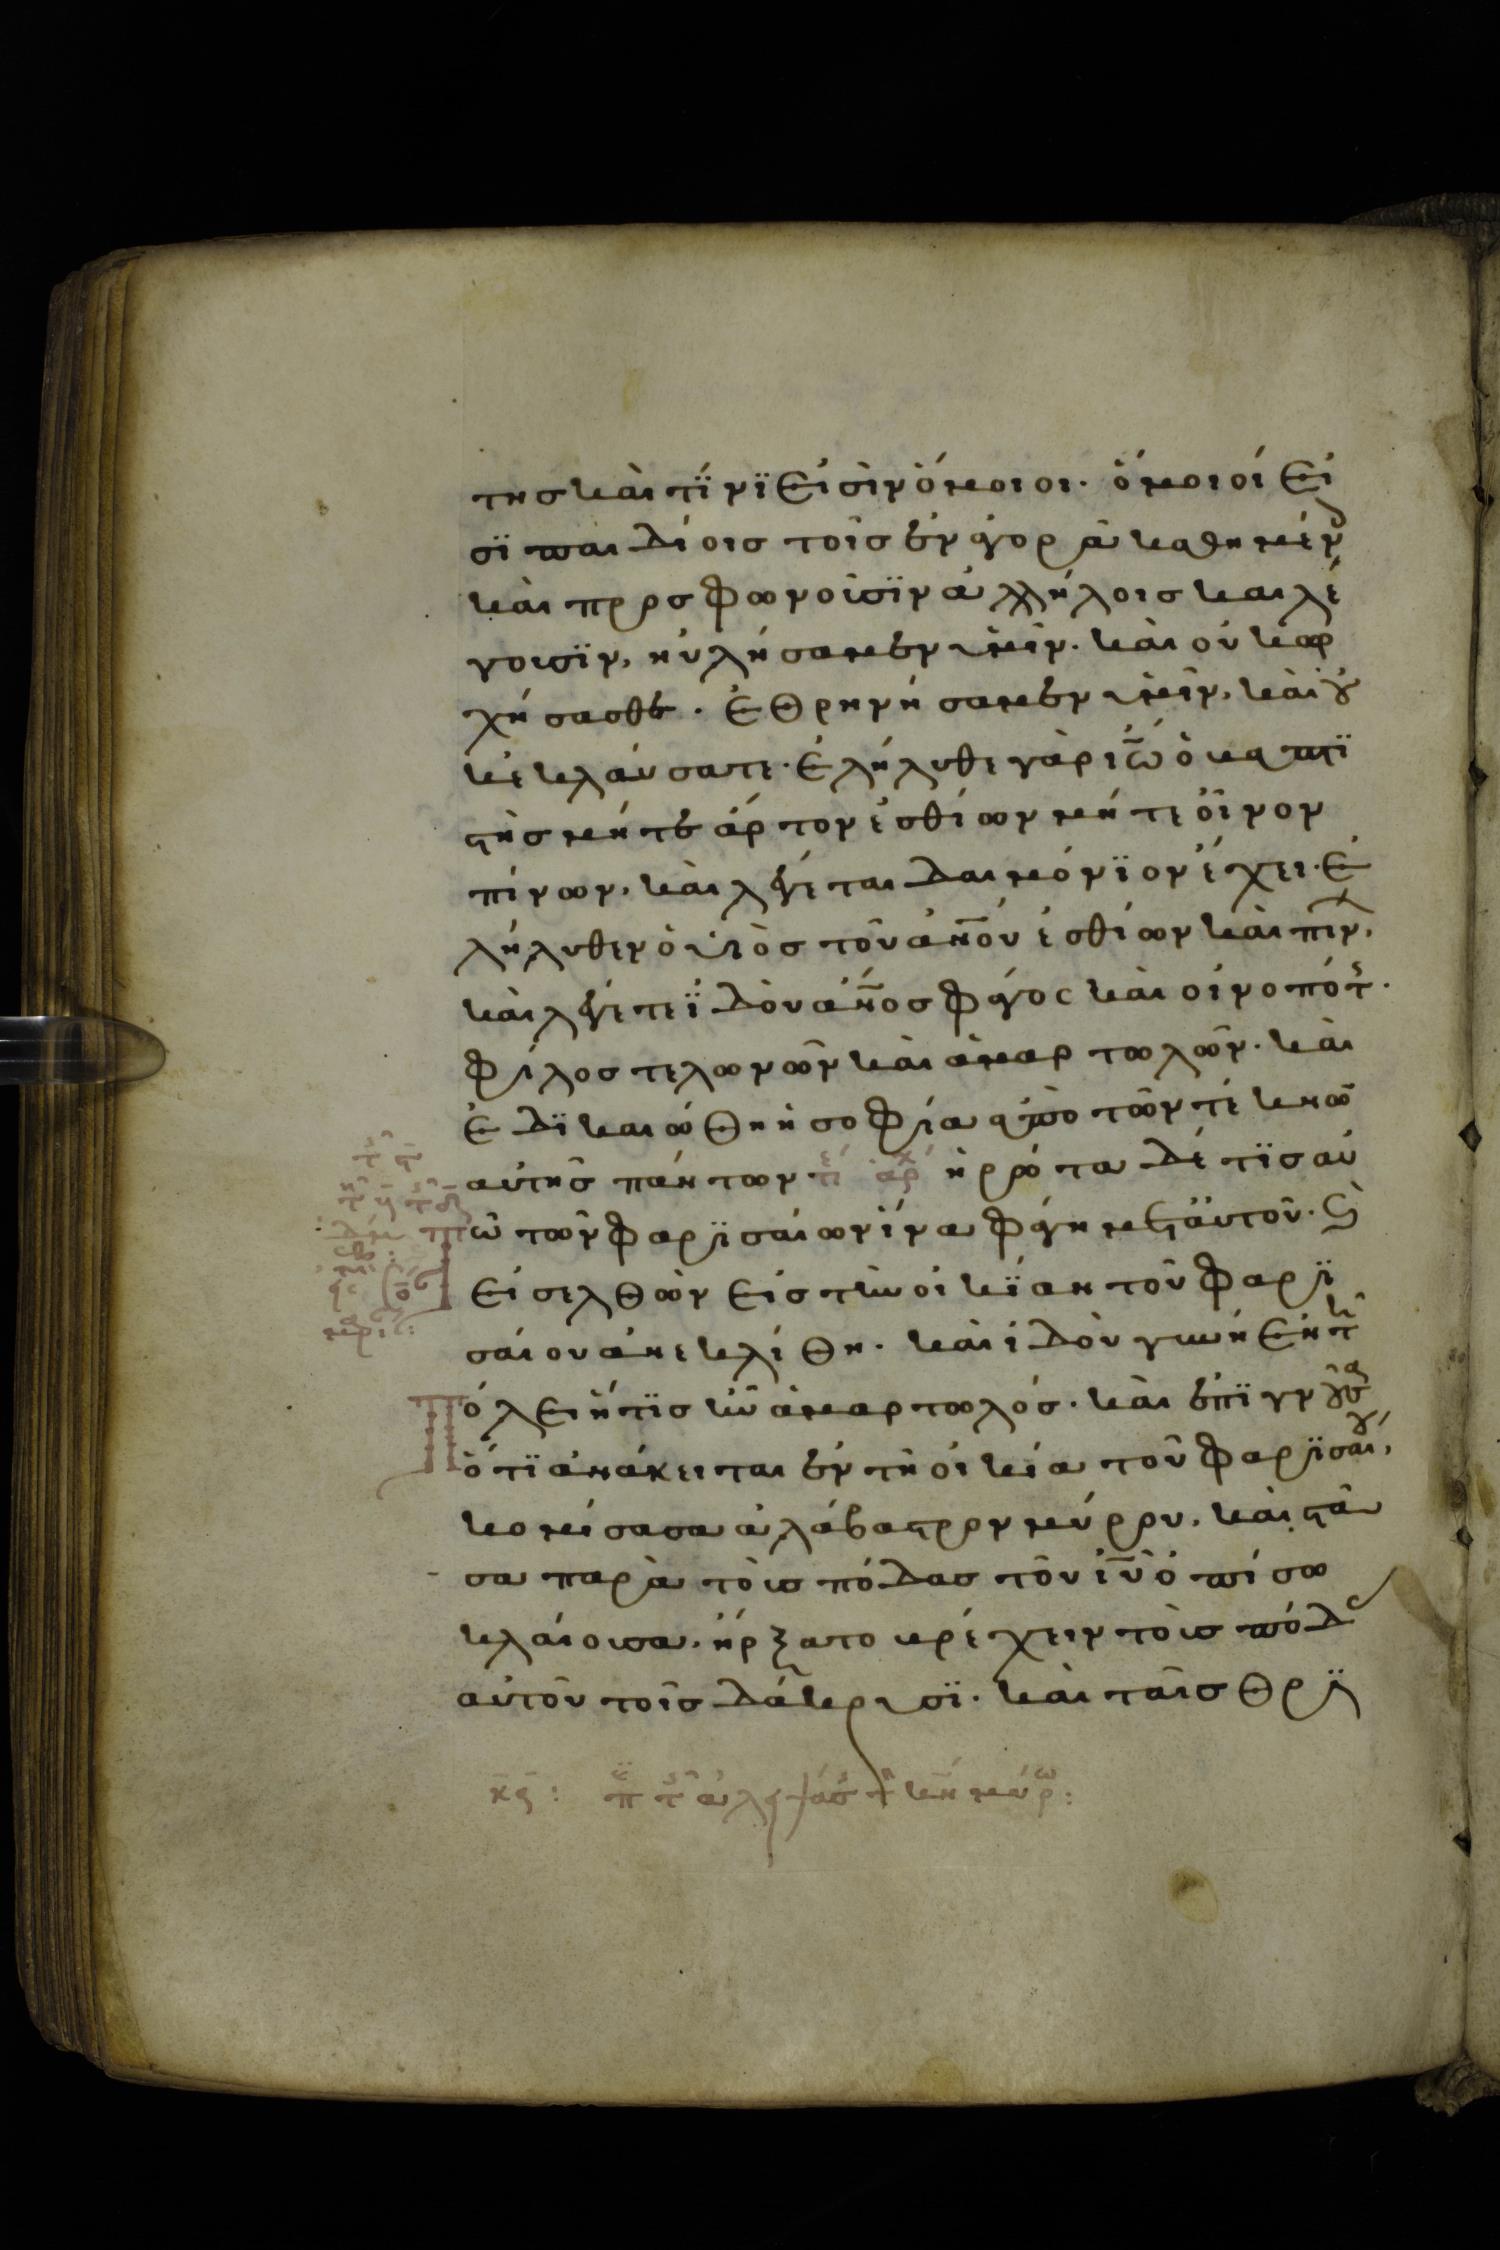 της καὶ τΐνϊ εἰσὶν ὅμοιοι· ὅμοιοί εἰ
σϊ παιδίοις τοῖς ἐν ἀγορᾶ καθημένοις
καὶ προσφωνοῦσϊν ἀλλήλοις καὶ λέ
γουσϊν, ηὐλήσαμεν ὑμῖν· καὶ οὐκ ὠρ
χήσασθε · ἐθρηνήσαμεν ὑμῖν, καὶ οὐ
κ ἐκλαύσατε· ἐλήλυθε γὰρ ἰω̅ ὁ βαπτϊ
στὴς μήτε ἄρτον ἐσθίων μήτε οἶνον
πίνων, καὶ λέγεται δαιμόνϊον ἔχει· ἐ
λήλυθεν ὁ υἱὸς τοῦ ἀν̅ου ἐσθίων καὶ πίνων,
καὶ λέγετε ἰ̈δοὺ ἄν̅ος φάγος καὶ οἰνοπότης·
φίλος τελωνῶν καὶ ἁμαρτωλῶν· καὶ
ἐδϊκαιώθη ἡ σοφία ἀπὸ τῶν τέκνων
αὐτῆς πάντων τέ ἀρχ ἠρώτα δέ τϊς αὐ
τῶ τῶν φαρϊσαίων ἵνα φάγη μετ αὐτοῦ· ϗ
εἰσελθὼν εἰς τὴν οἰκϊαν τοῦ φαρϊ
σαίου ἀνεκλίθη· καὶ ἰδοὺ γυνὴ ἐν τῆ
πόλει ἥτϊς ἦν ἁμαρτωλός· καὶ ἐπϊγνοῦσα
ὅτϊ ἀνάκειται ἐν τῆ οἰκία τοῦ φαρϊσαίου,
κομίσασα ἀλάβαστρον μύρου, καὶ στᾶ
σα παρὰ τοὺς πόδας τοῦ ἰυ̅ ὀπίσω
κλαίουσα, ἤρξατο βρέχειν τοὺς πόδας
αὐτοῦ τοῖς δάκρυσϊ· καὶ ταῖς θρϊ
κ̅ς̅ : π τ ἀλειψάσ τ κ̅ν μύρω :